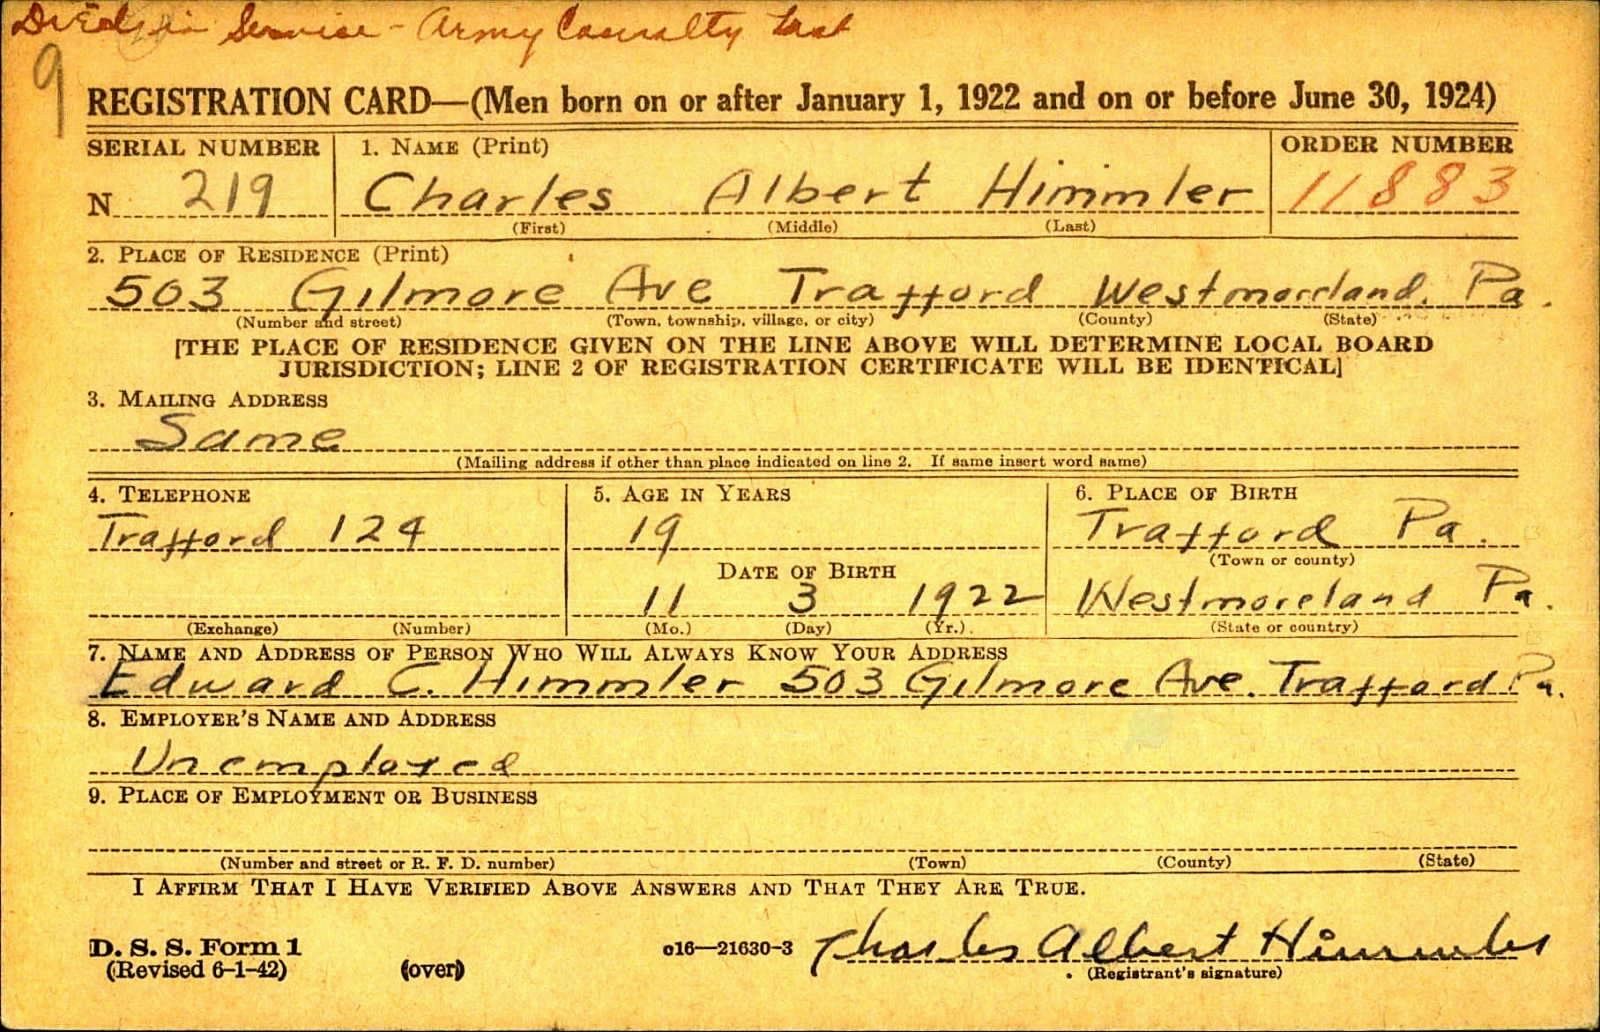 Died in Service - Army Casualty List
9
REGISTRATION CARD—(Men born on or after January 1, 1922 and on or before June 30, 1924)
SERIAL NUMBER 1. NAME (Print) ORDER NUMBER
N 219 Charles Albert Himmler 11883
(First) (Middle) (Last)
2. PLACE OF RESIDENCE (Print)
503 Gilmore Ave Trafford Westmoreland, Pa.
(Number and street) (Town, township, village, or city) (County) (State)
[THE PLACE OF RESIDENCE GIVEN ON THE LINE ABOVE WILL DETERMINE LOCAL BOARD
JURISDICTION; LINE 2 OF REGISTRATION CERTIFICATE WILL BE IDENTICAL]
3. MAILING ADDRESS
Same
(Mailing address if other than place indicated on line 2. If same insert word same)
4. TELEPHONE 5. AGE IN YEARS 6. PLACE OF BIRTH
Trafford 124 19 Trafford Pa.
(Town or county)
DATE OF BIRTH
11 3 1922 Westmoreland Pa.
(Exchange) (Number) (Mo.) (Day) (Yr.) (State or country)
7. NAME AND ADDRESS OF PERSON WHO WILL ALWAYS KNOW YOUR ADDRESS
Edward C. Himmler 503 Gilmore Ave. Trafford Pa.
8. EMPLOYER'S NAME AND ADDRESS
Unemployed
9. PLACE OF EMPLOYMENT OR BUSINESS
(Number and street or R. F. D. number) (Town) (County) (State)
I AFFIRM THAT I HAVE VERIFIED ABOVE ANSWERS AND THAT THEY ARE TRUE.
D. S. S. Form 1 o16—21630-3 Charles Albert Himmler
(Revised 6-1-42) (over) (Registrant's signature)